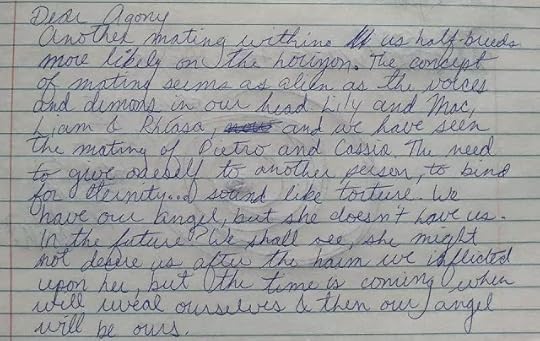 Dear Agony
Another mating withine us half-breeds
more likely on the horizon. The concept
of mating seems as alien as the voices
and demons in our head Lily and Mac,
Liam & Rhiasa, now and we have seen
the mating of Pietro and Cassia. The need
to give oneself to another person, to bind
for eternity... sound like torture. We
have our angel, but she doesn't have us.
In the future? We shall see, she might
not desire us after the harm we inflicted
upon her, but the time is coming when
will reveal ourselves & then our angel
will be ours.